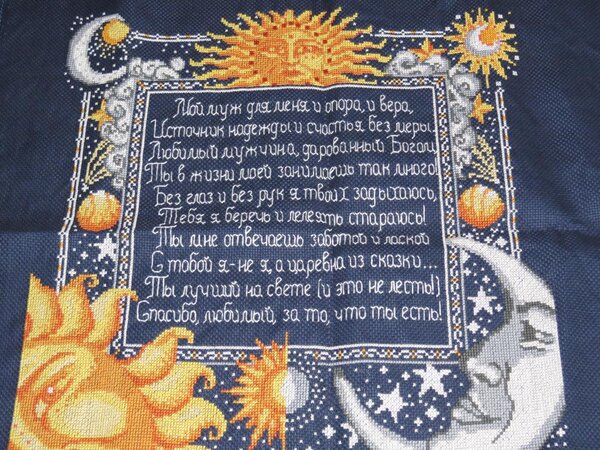 Мой муж для меня и опора, и вера,
Источник надежды и счастья без меры.
Любимый мужчина, дарованный Богом,
Ты в жизни моей занимаешь так много!
Без глаз и без рук я твоих задыхаюсь,
Тебя я беречь и лелеять стараюсь!
Ты мне отвечаешь заботой и лаской
С тобой я - не я, а царевна из сказки...
Ты лучший на свете (и это не лесть!)
Спасибо, любимый, за то, что ты есть!